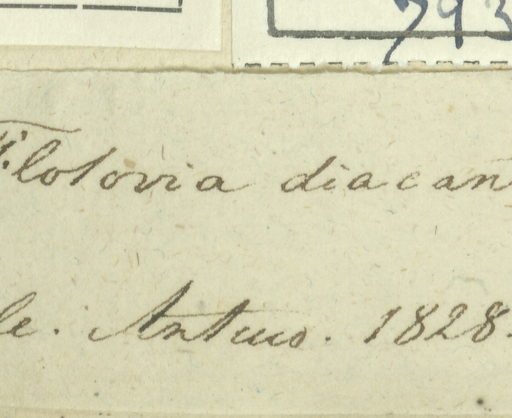 793
Flotovia diacan
le. Antuco. 1828.